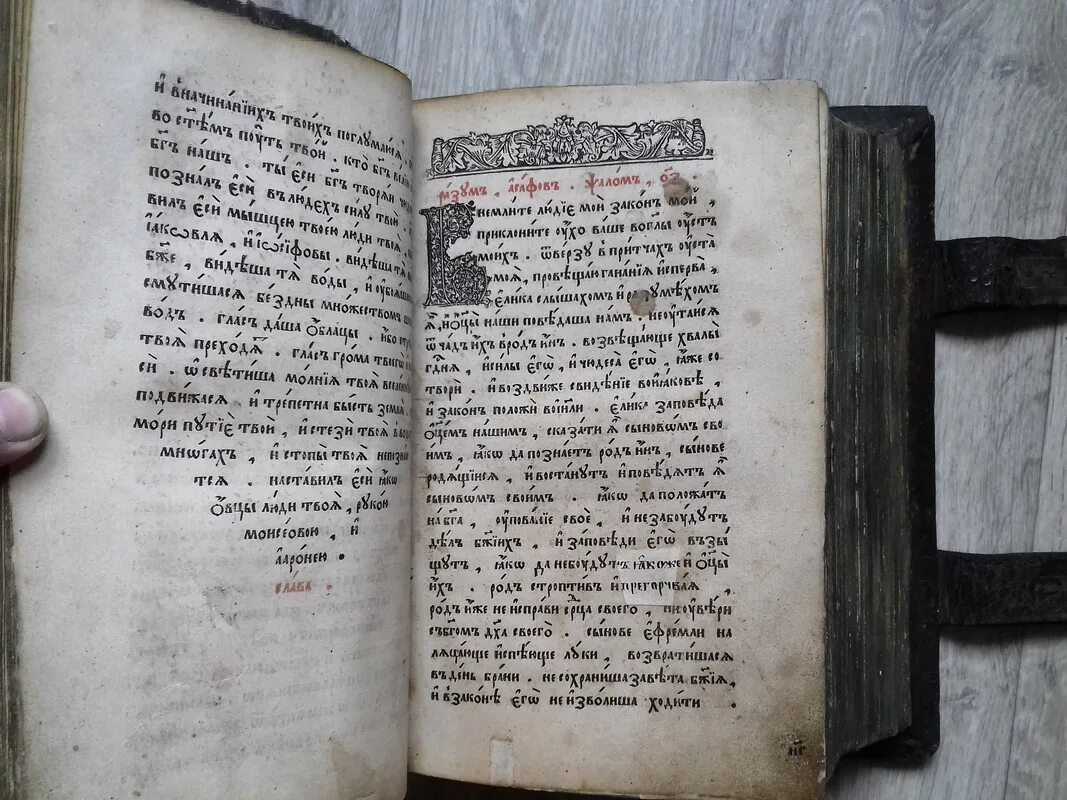 и҆ вначина́нїихъ твои́хъ поглꙋмлю́ся.
во ст҃ѣмъ пꙋ́ть тво́й . кто̀ бг҃ъ ве́лїи
бг҃ъ на́шъ . ты̀ є҆сѝ бг҃ъ творѧ́и
позна́лъ є҆сѝ въ лю́дехъ си́лꙋ твою̀
вилъ є҆сѝ мы́шцею твоею лю́ди твоѧ̀ ,
і҆а́кѡвлѧ , и҆ і҆ѡ́сифовы . ви́дѣша тѧ̀
бж҃е , ви́дѣша тѧ̀ во́ды , и҆ ᲂу҆боѧ́шасѧ
смꙋти́шасѧ бе́здны мно́жествомъ
во́дъ . гла́съ да́ша ѻ҆́блацы . и҆́бо
твоѧ̀ прехо́дѧт . гла́съ гро́ма твоегѡ̀
сѝ . ѡ҆свѣти́ша мо́лнїѧ твоѧ̀ вселе́ннꙋю
подви́жасѧ . и҆ тре́петна бы́сть землѧ̀ .
мо́ри пꙋтїѐ твоѝ , и҆ стезѝ твоѧ̀ в вода́хъ
мно́гахъ , и҆ стопы̀ твоѧ̀ непозна́ю
тсѧ . наста́вилъ є҆сѝ ꙗ҆́кѡ
ѻ҆́вцы лю́ди твоѧ̀ , рꙋко́ю
моисе́овою , и҆
а҆аро́нею .
сла́ва .
ра́зꙋмъ , а҆са́фовъ . ѱало́мъ , о҃з .
Внемли́те лю́дїе мои̑ зако́нъ мо́й ,
приклони́те ᲂу҆́хо ва́ше во гл҃ы ᲂу҆́стъ
мои́хъ . ѿве́рзꙋ в при́тчахъ ᲂу҆ста̀
моѧ̀ , провѣща́ю гана́нїѧ и҆спе́рва ,
є҆ли́ка слы́шахомъ и҆ разꙋмѣ́хомъ
ѧ҆̀ , и҆ ѻ҆ц҃ы̀ на́ши повѣ́даша на́мъ . неᲂу҆таи́сѧ
ѿ ча́дъ и҆́хъ в ро́дъ и҆́нъ . возвѣща́юще хвалы̀
гдⷭ҇нѧ , и҆ си́лы є҆гѡ̀ , и҆ чюдеса̀ є҆гѡ̀ , ꙗ҆́же со
творѝ . и҆ воздви́же свидѣ́нїе во і҆а́ковѣ ,
и҆ зако́нъ положѝ во і҆и҃ли . є҆ли́ка заповѣ́да
ѻ҆ц҃е́мъ на́шимъ , сказа́ти ѧ҆̀ сыново́мъ сво
и҆́мъ , ꙗ҆́кѡ да позна́етъ ро́дъ и҆́нъ , сы́нове
родѧ́щїисѧ , и҆ воста́нꙋтъ и҆ повѣ́дѧтъ ѧ҆̀
сыново́мъ свои́мъ . ꙗ҆́кѡ да положа́тъ
на бг҃а , ᲂу҆пова́нїе своѐ , и҆ не забꙋ́дꙋтъ
дѣ́лъ бж҃їихъ , и҆ за́повѣди є҆гѡ̀ взы́
щꙋтъ , ꙗ҆́кѡ да небꙋ́дꙋтъ ꙗ҆́коже и҆ ѻ҆ц҃ы̀
и҆́хъ . ро́дъ стро́птивъ и҆ прегорчева́ѧ ,
ро́дъ и҆́же не и҆спра́ви срⷣца своегѡ̀ , и҆ не ᲂу҆вѣ́ри
съ бг҃омъ дх҃а своегѡ̀ . сы́нове є҆фре́мли на
лѧца́юще и҆ спѣ́юще лꙋ́ки , возврати́шасѧ
въ де́нь бра́ни . не сохрани́ша завѣ́та бж҃їѧ ,
и҆ в зако́нѣ є҆гѡ̀ не и҆зво́лиша ходи́ти .
н҃г